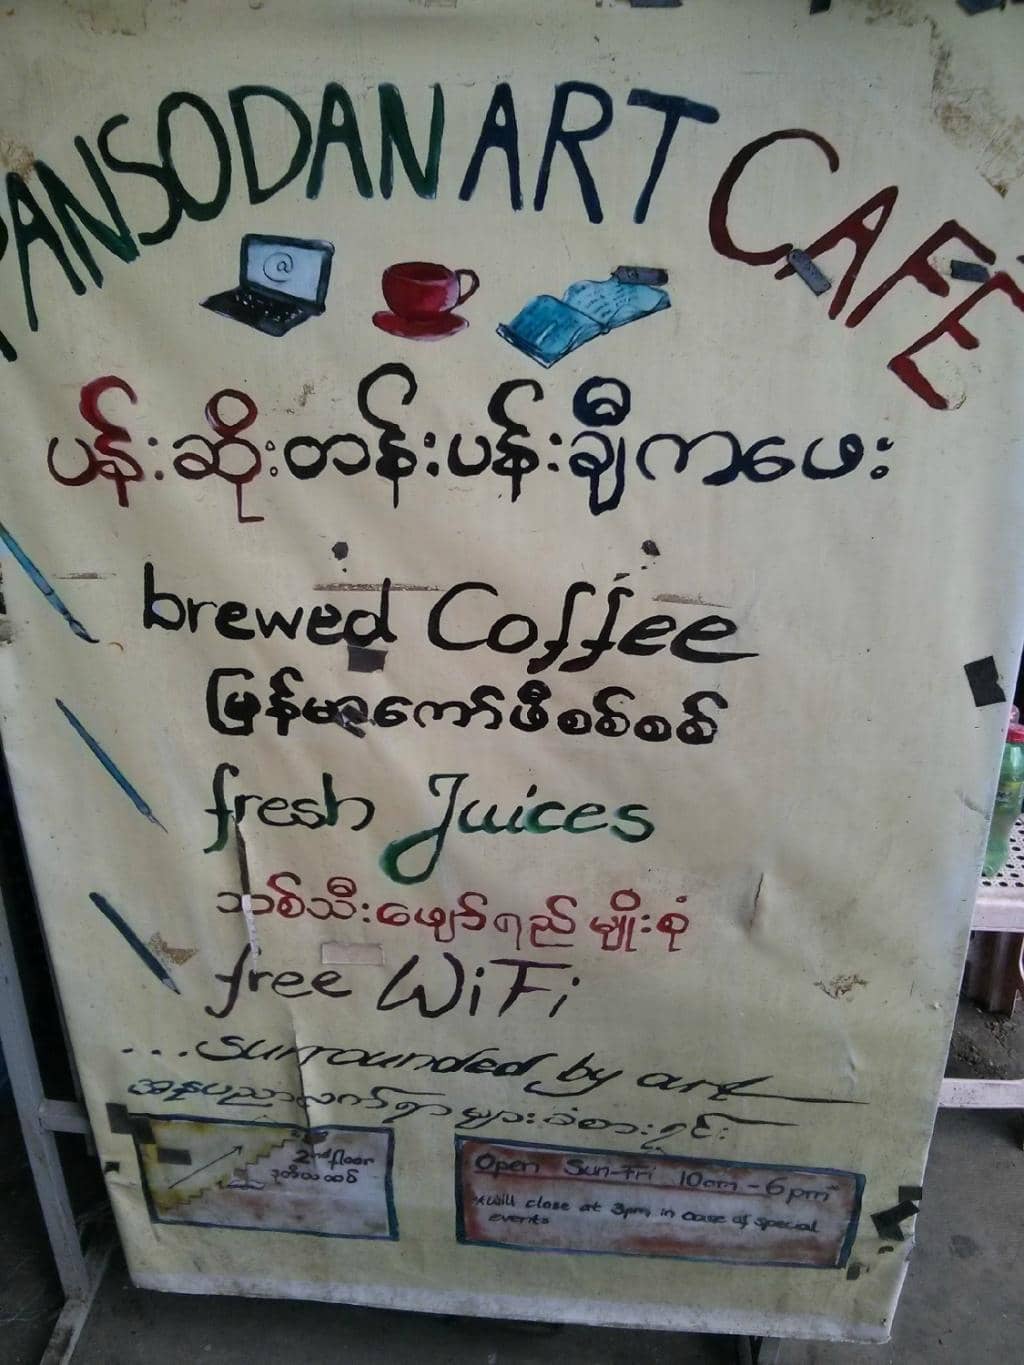 PANSODAN ART CAFE
@
ပန်းဆိုးတန်းပန်းချီကဖေး
brewed Coffee
မြန်မာကော်ဖီစစ်စစ်
fresh Juices
သစ်သီးဖျော်ရည်မျိုးစုံ
free WiFi
...surrounded by art
အနုပညာလက်ရာများခံစားရင်း
2nd floor
ဒုတိယထပ်
Open Sun-Fri 10am - 6pm*
*will close at 3pm in case of special
events